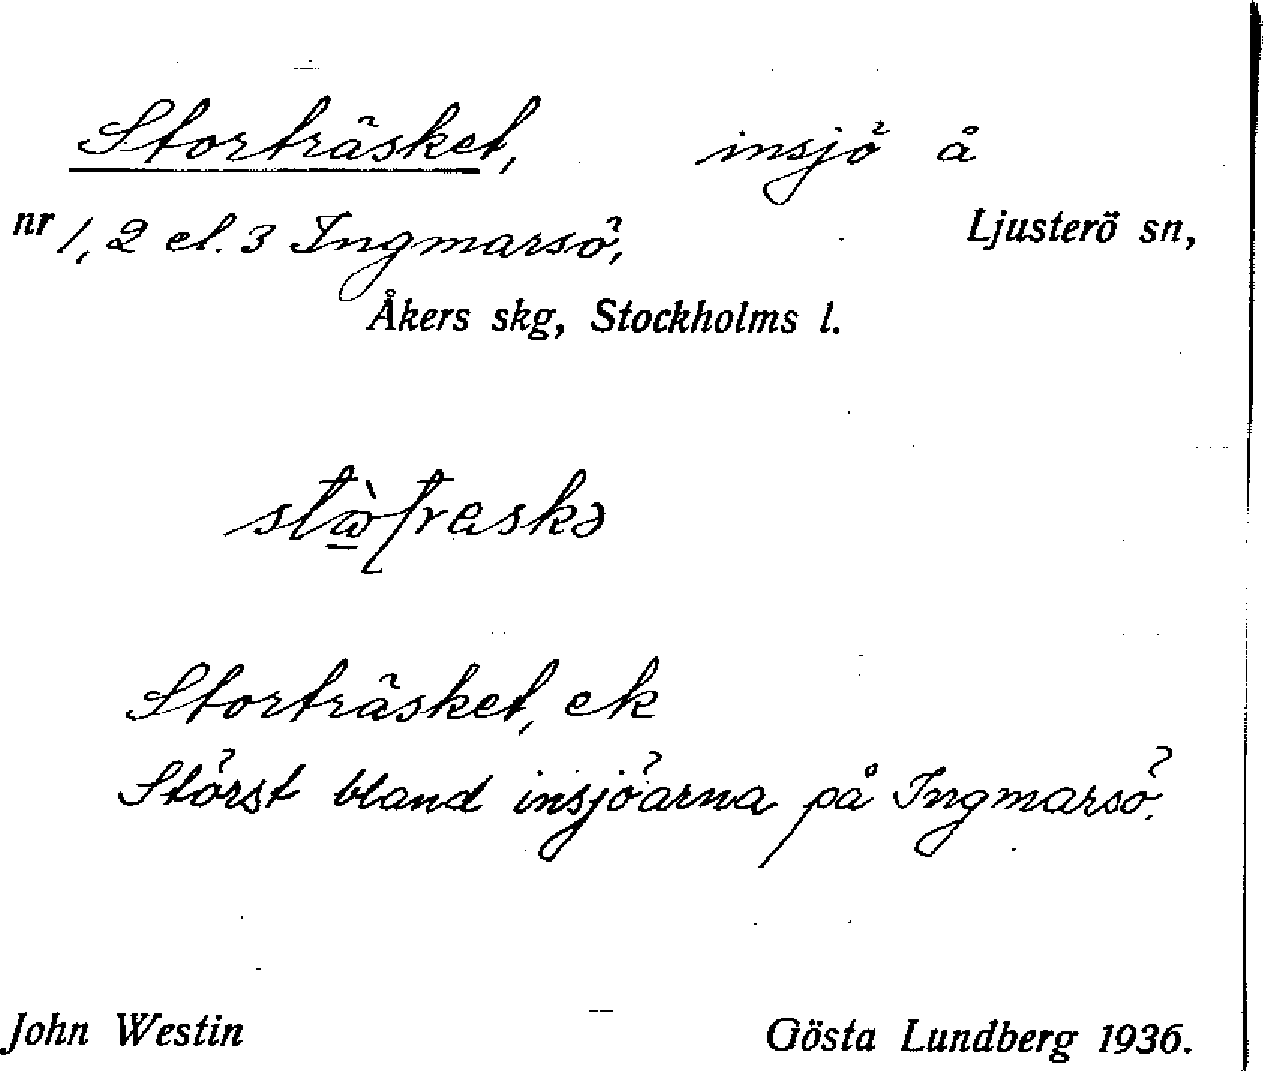 Storträsket, insjö å
nr 1, 2 el. 3 Ingmarsö, Ljusterö sn,
Åkers skg, Stockholms l.
Storträsket, ek
Störst bland insjöarna på Ingmarsö.
John Westin Gösta Lundberg 1936.